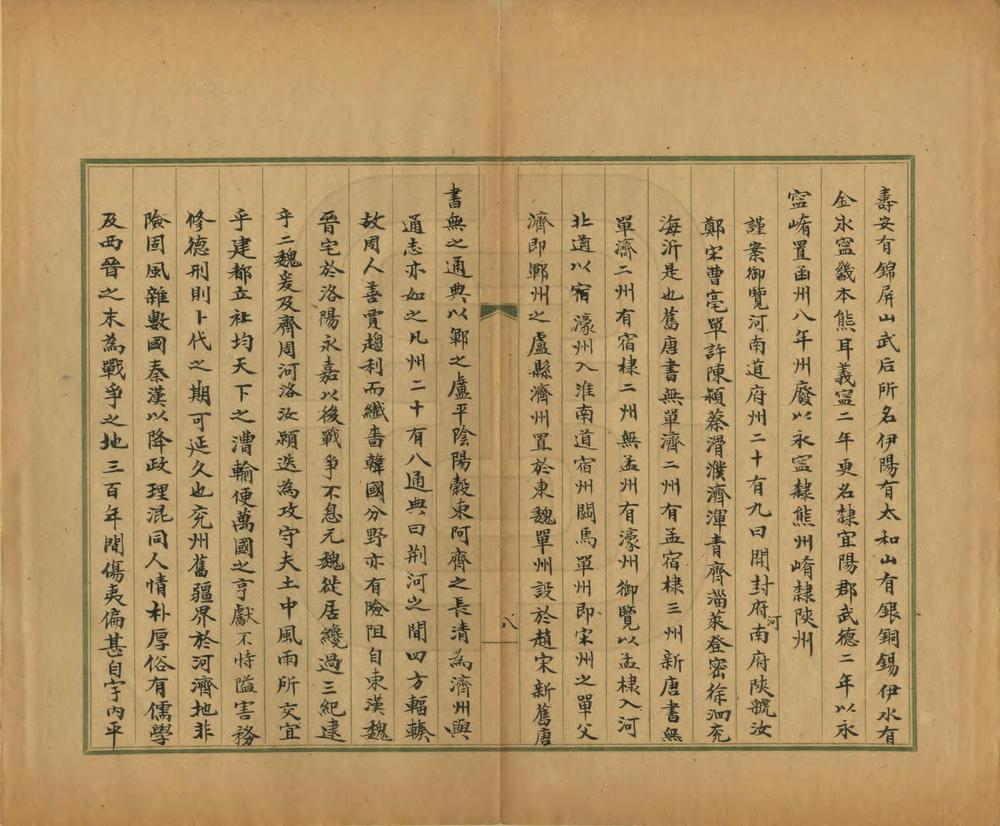 壽安有錦屏山武后所名伊陽有太和山有銀銅錫伊水有
金永寍畿本熊耳義寍二年更名隸宜陽郡武德二年以永
寍崤置函州八年州廢以永寍隸熊州崤隸陝州
謹案御覽河南道府州二十有九曰開封府河南府陝虢汝
鄭宋曹亳單許陳潁蔡滑濮濟渾青齊淄萊登密徐泗兖
海沂是也舊唐書無單濟二州有孟宿棣三州新唐書無
單濟二州有宿棣二州無孟州有濠州御覽以孟棣入河
北道以宿濠州入淮南道宿州闕馬單州即宋州之單父
濟即鄆州之盧縣濟州置於東魏單州設於趙宋新舊唐
八
書無之通典以鄆之盧平陰陽穀東阿齊之長清為濟州與
通志亦如之凡州二十有八通典曰荆河之間四方輻輳
故周人善賈趨利而纖嗇韓國分野亦有險阻自東漢魏
晉宅於洛陽永嘉以後戰爭不息元魏徙居纔過三紀逮
乎二魏爰及齊周河洛汝潁迭為攻守夫土中風雨所交宜
乎建都立社均天下之漕輸便萬國之亨獻不恃隘害務
修德刑則卜代之期可延久也兖州舊疆界於河濟地非
險固風雜數國秦漢以降政理混同人情朴厚俗有儒學
及西晉之末為戰爭之地三百年間傷夷偏甚自宇內平